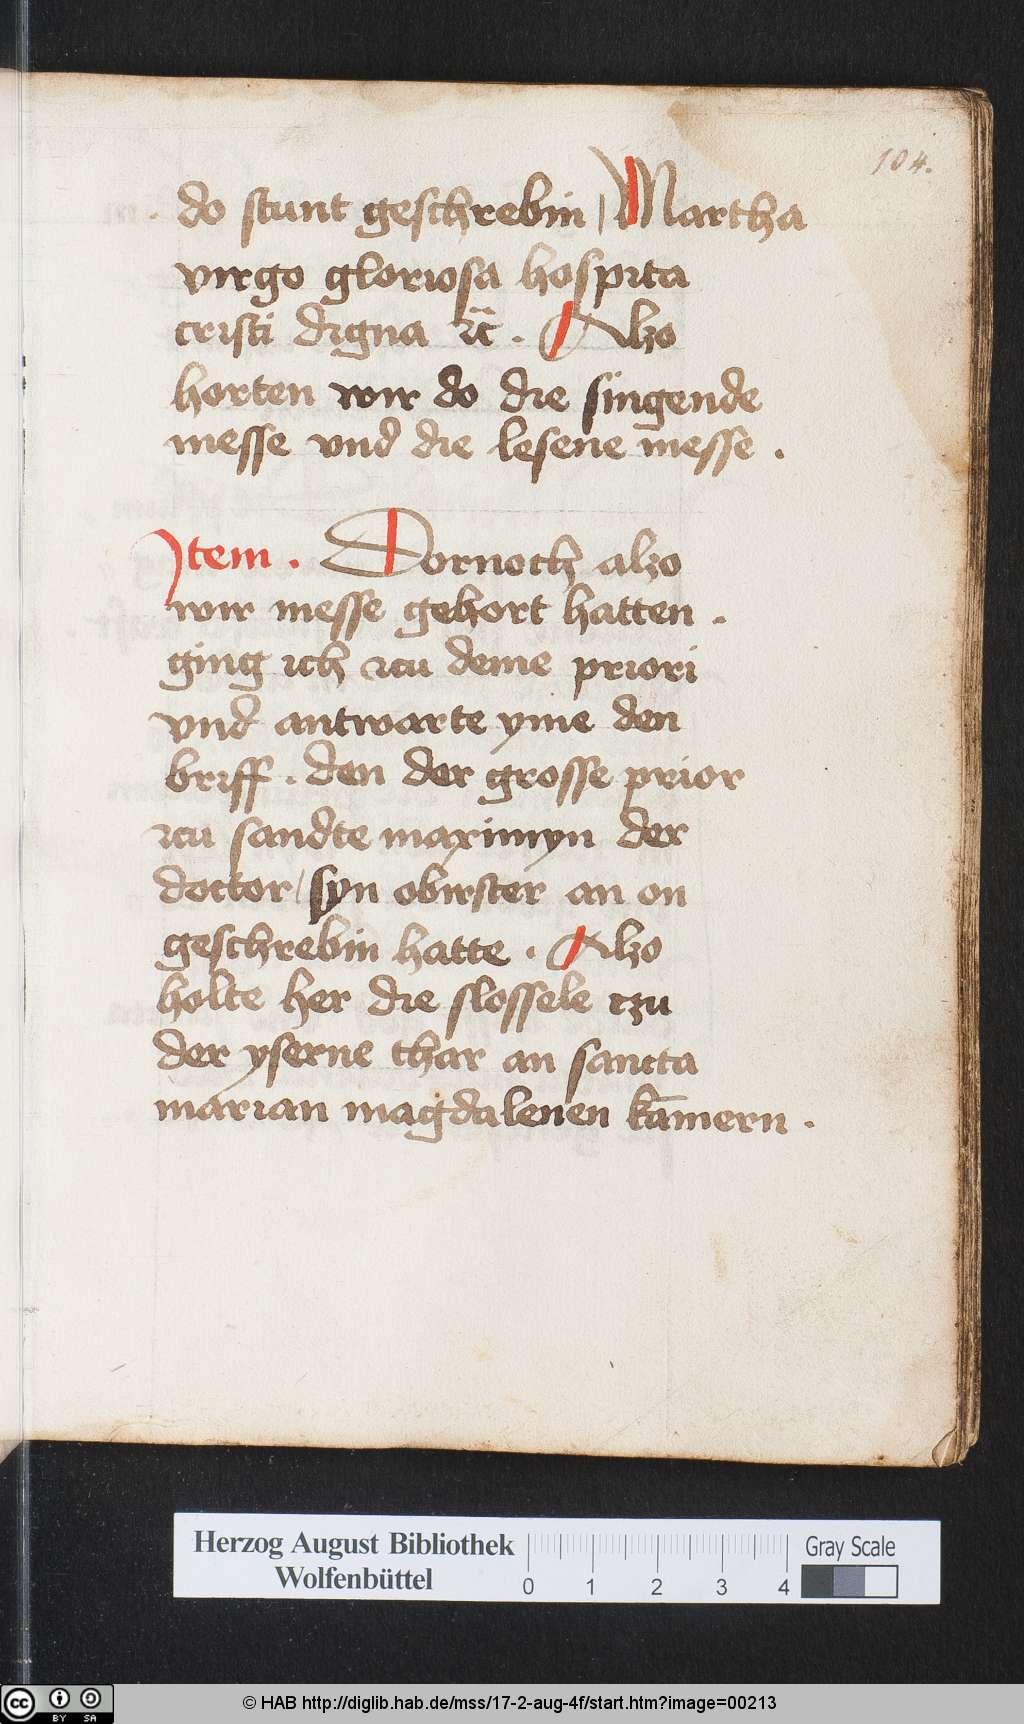 104.
do stunt geschrebin / Martha
virgo gloriosa hospita
cristi digna ⁊c̃ . Alzo
horten wir do die singende
messe vnd die lesene messe .
Item . Dornoch alzo
wir messe gehort hatten .
ging ich zcu deme priori
vnd antwarte yme den
briff . den der grosse prior
zcu sandte maximyn der
doctor / syn obirster an on
geschrebin hatte . Alzo
holte her die slossele tzu
der yserne thar an sancta
marian magdalenen kām̄ern .
Herzog August Bibliothek
Wolfenbüttel
0 1 2 3 4
Gray Scale
cc BY SA
© HAB http://diglib.hab.de/mss/17-2-aug-4f/start.htm?image=00213